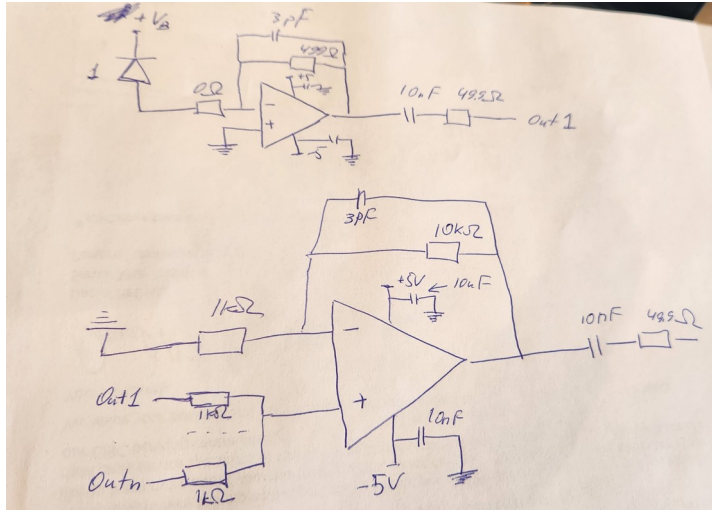 + VB
3pF
1
499Ω
0Ω
+5
-
+
-5
10nF
49.9Ω
Out1
3pF
10kΩ
+5V
10nF
1kΩ
-
10nF
49.9Ω
Out1
1kΩ
+
10nF
Outn
1kΩ
-5V